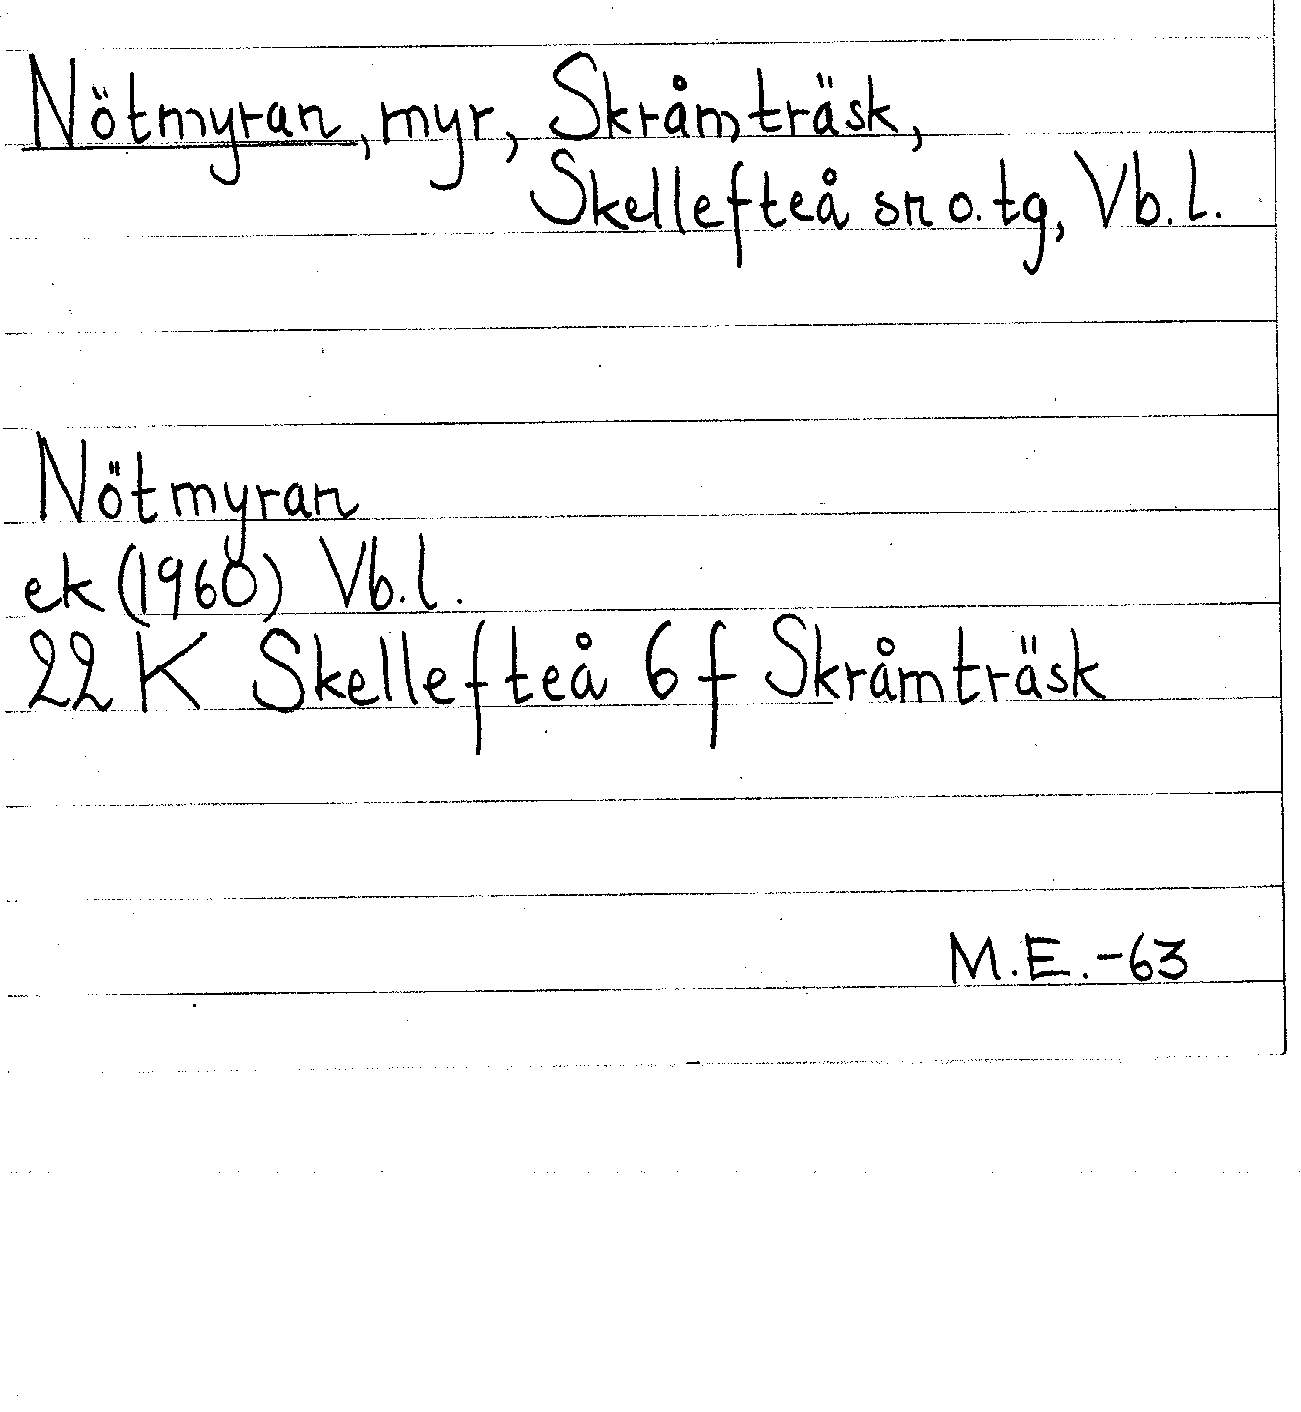 Nötmyran, myr, Skråmträsk,
Skellefteå sn o. tg, Vb. l.
Nötmyran
ek (1960) Vb. l.
22 K Skellefteå 6 f Skråmträsk
M.E.-63